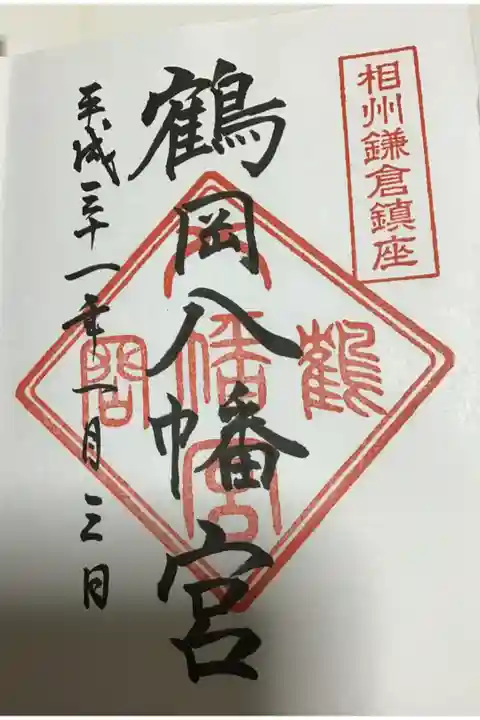 相州鎌倉鎮座
鶴岡八幡宮
鶴
岡
八幡宮
平成三十一年一月三日